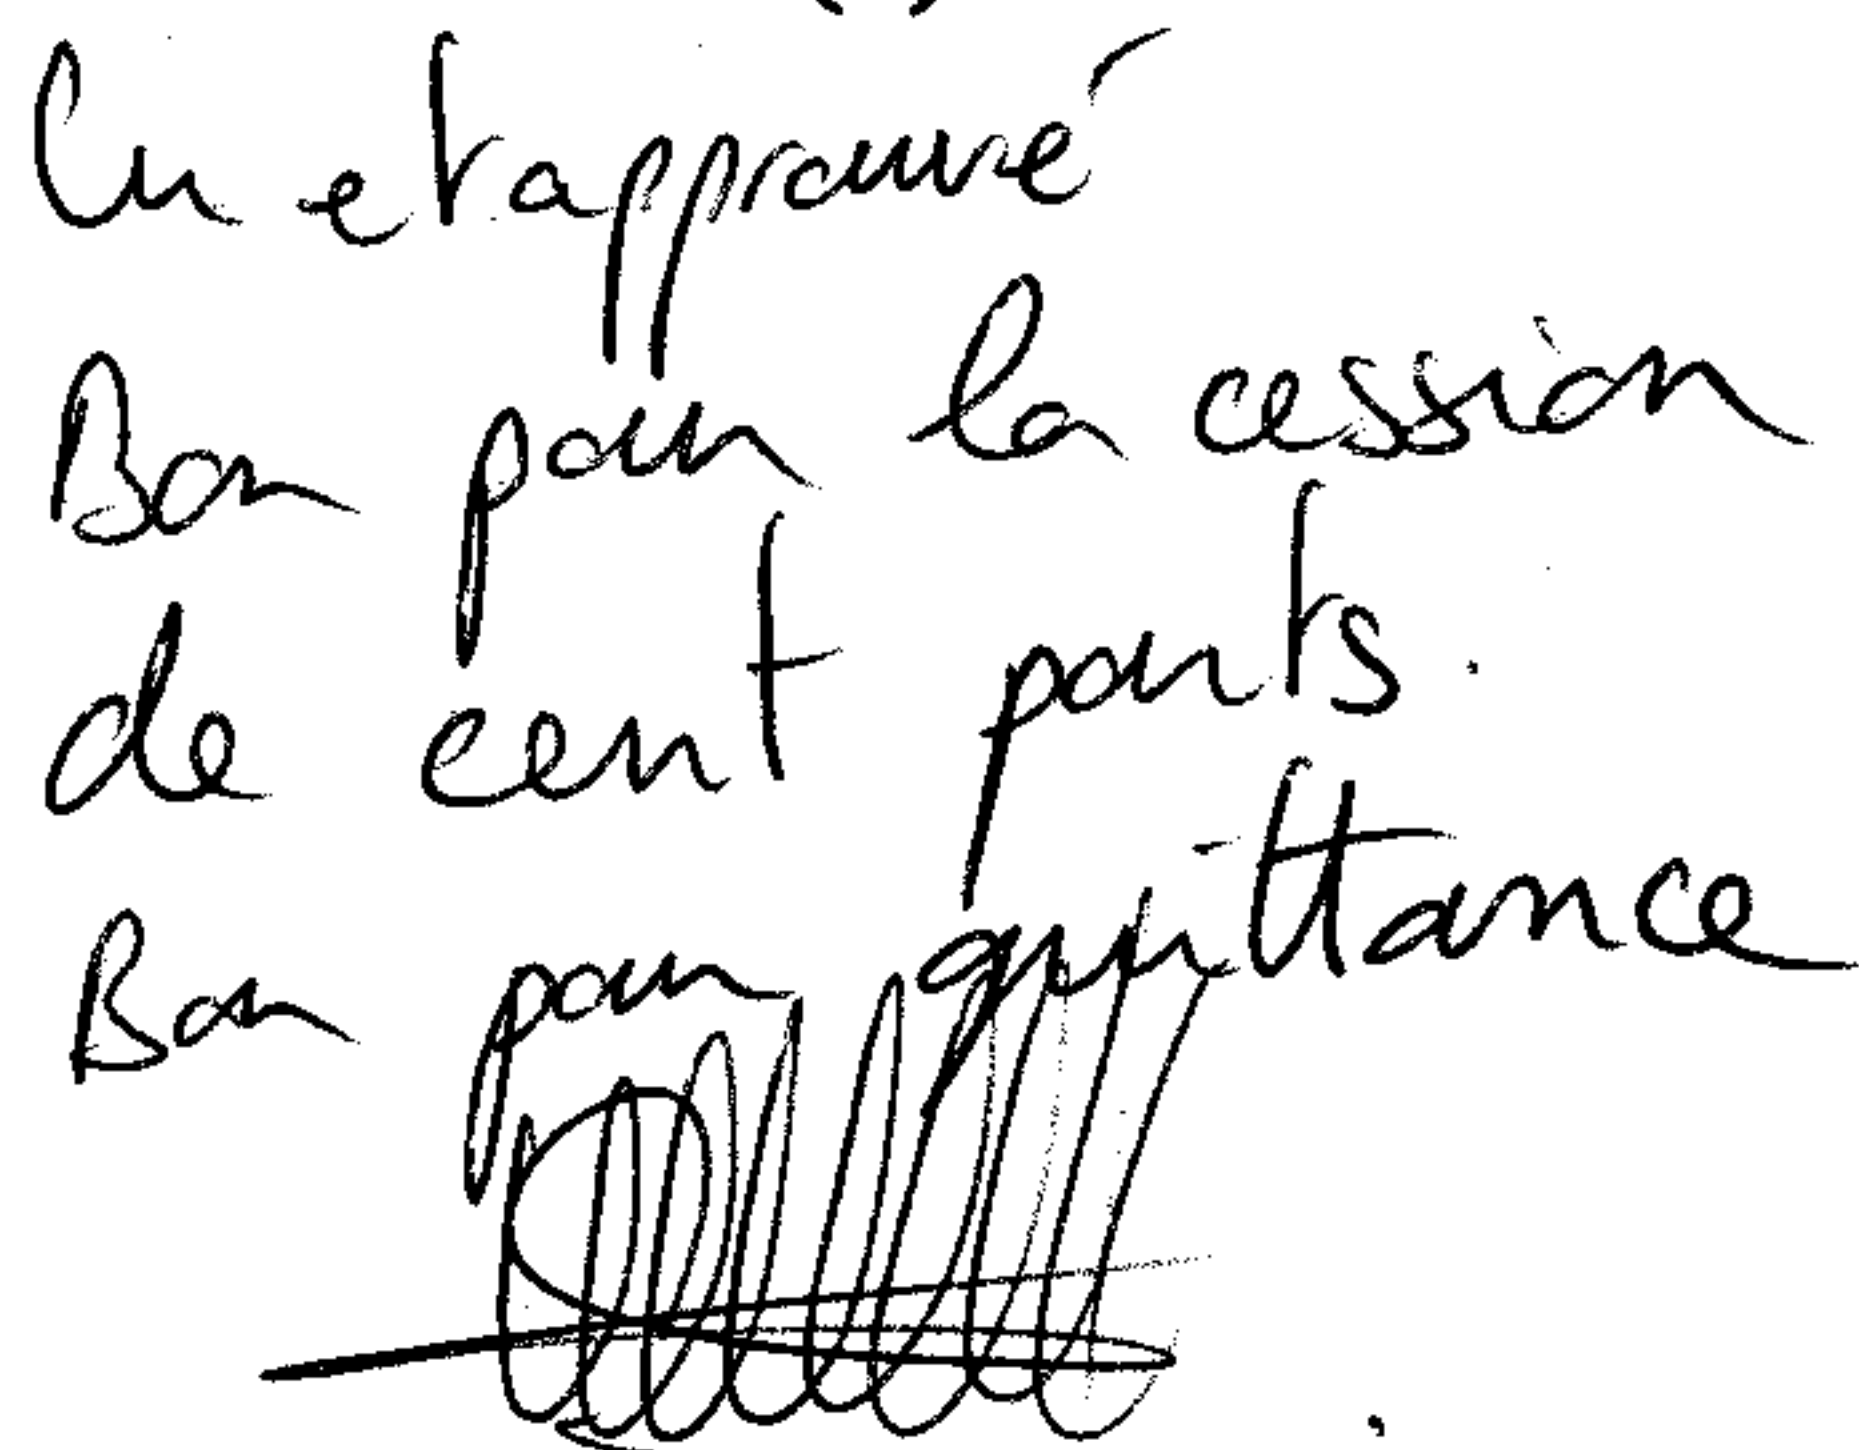 Lu et approuvé
Bon pour la cession
de cent parts.
Bon pour quittance